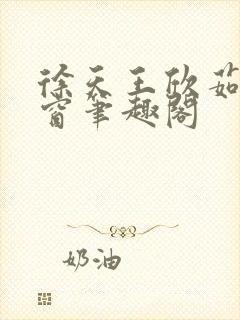 徐天王欣茹
窗笔趣阁
奶油